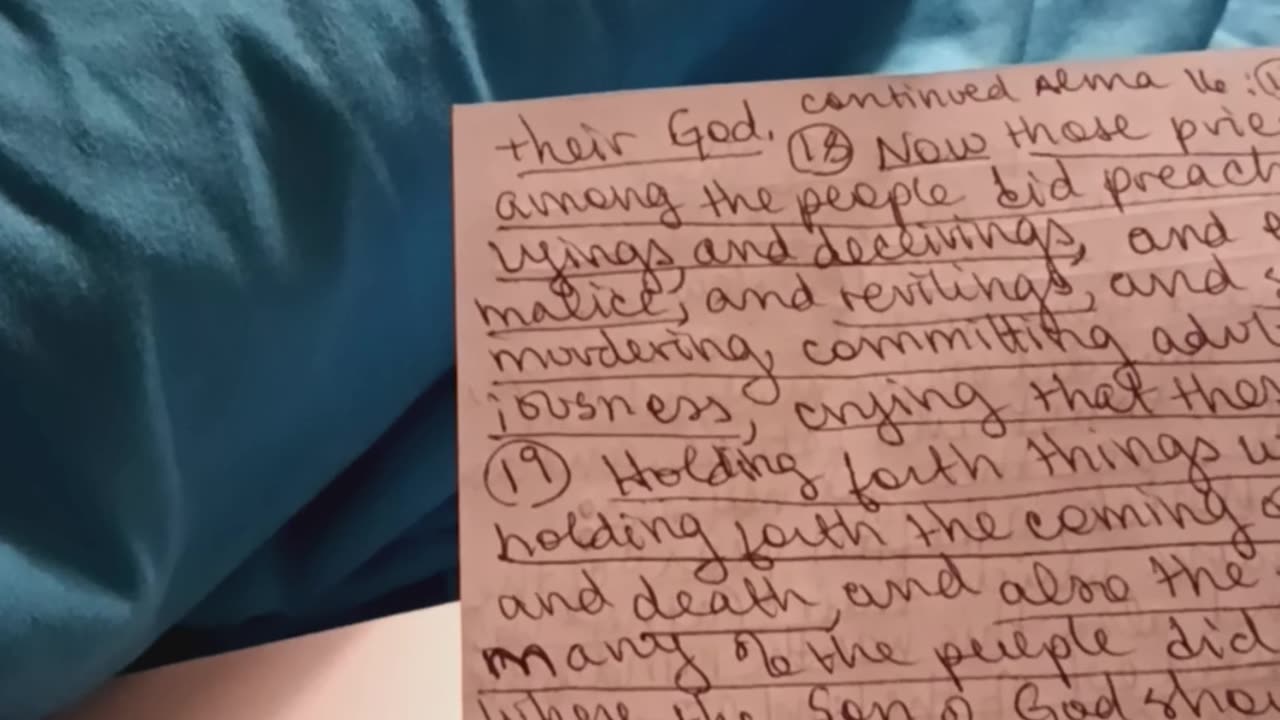 continued Alma 16:
their God. 18 Now those prie
among the people did preach
lyings, and deceivings, and
malice, and revilings, and s
murdering, committing adul
iousness, crying that thes
19 Holding forth things w
holding forth the coming o
and death, and also the
many of the people did
where the Son of God shou